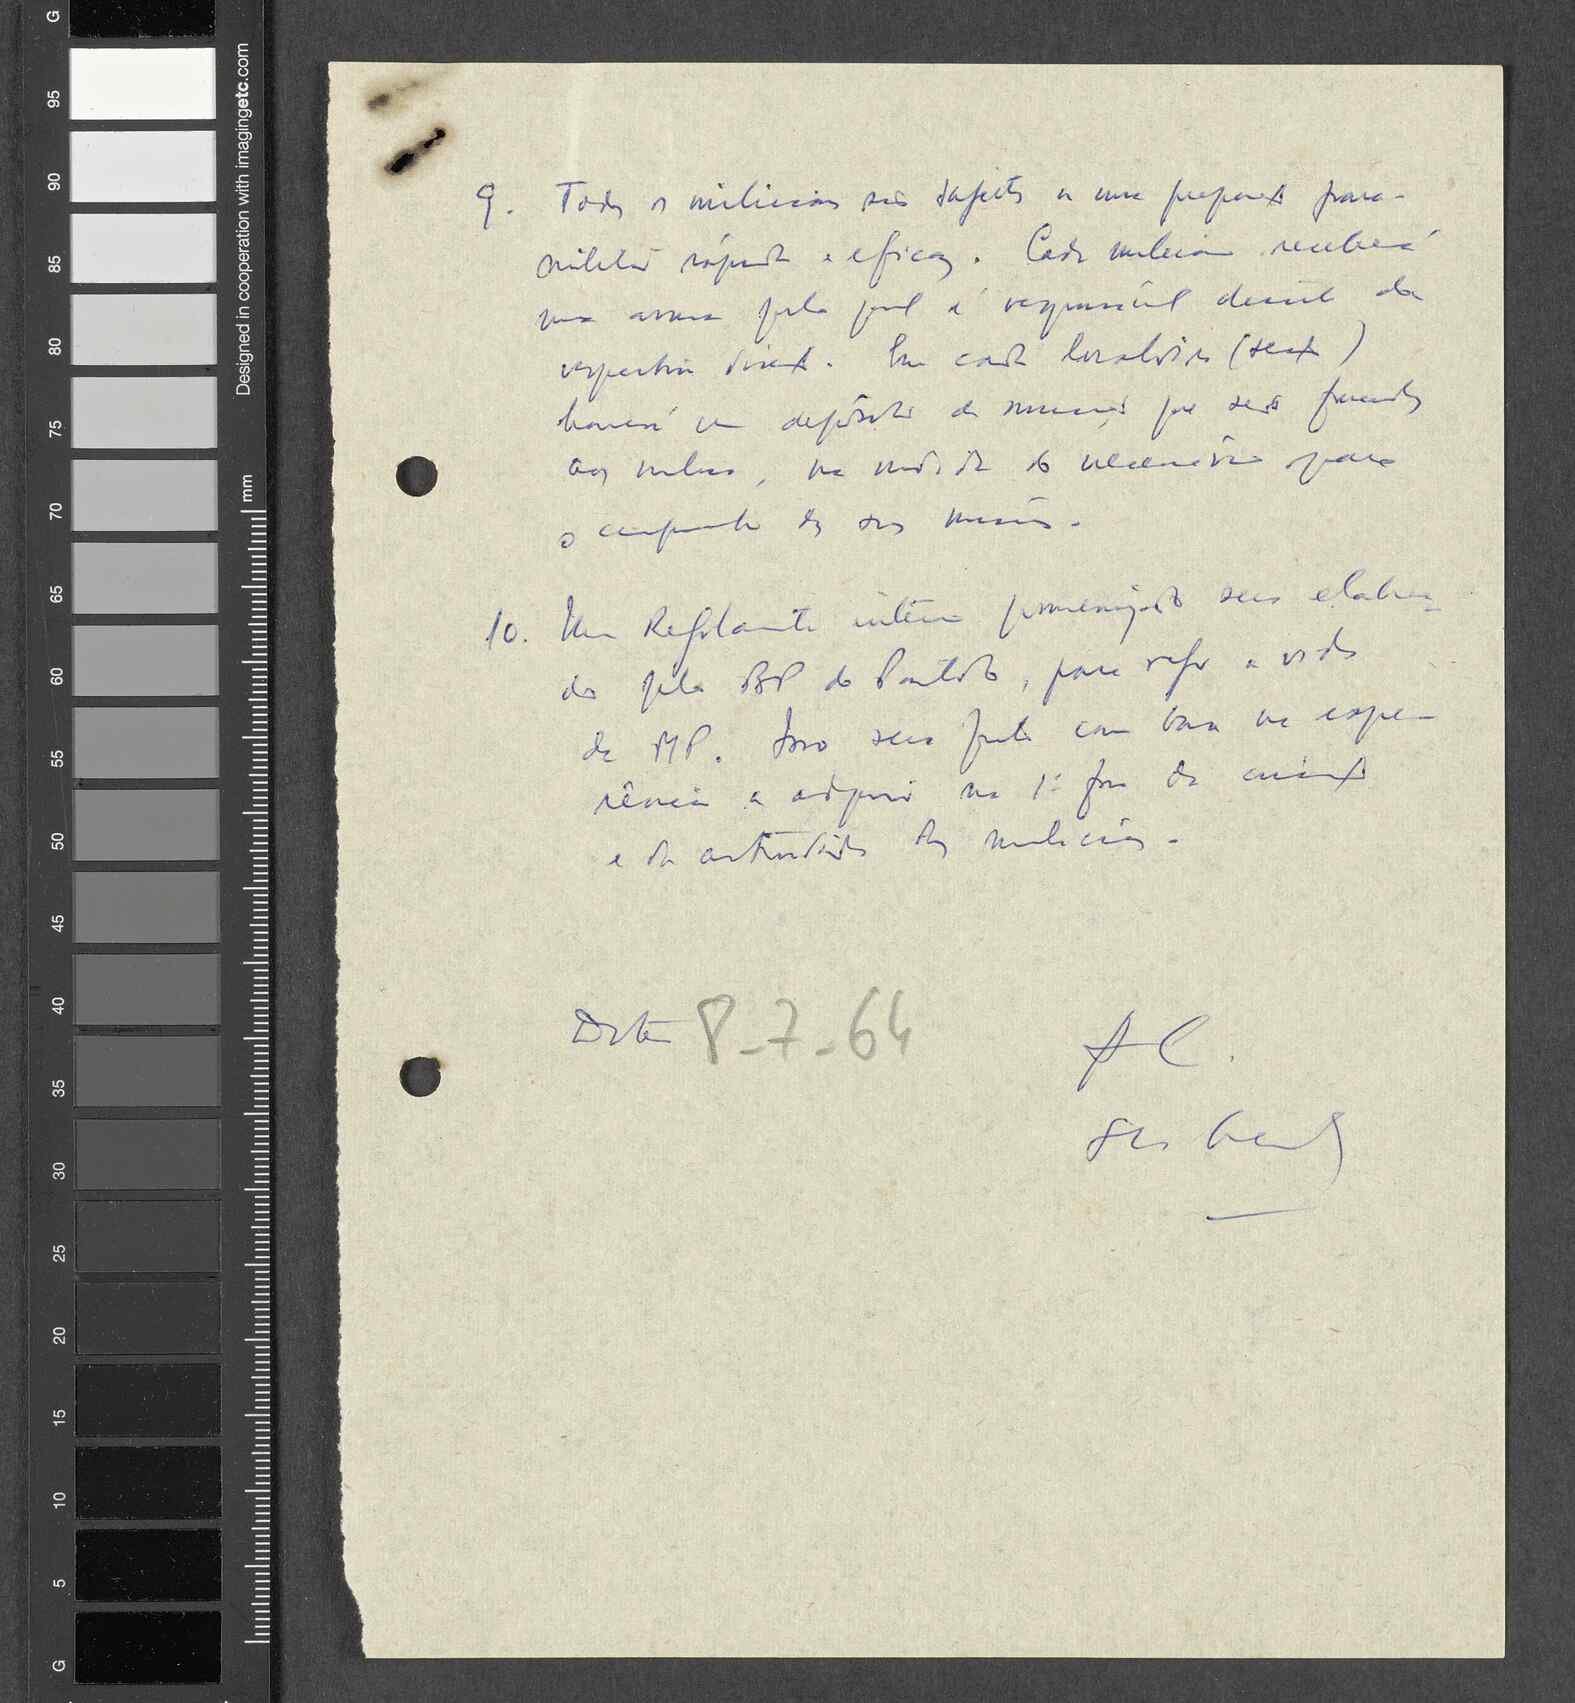 9. Todos os milicianos são sujeitos a uma preparação para-
militar rápida e eficaz. Cada miliciano receberá
uma arma pela qual é responsável diante da
respectiva direcção. Em cada localidade (secção)
haverá um depósito de munições que serão fornecidas
aos milicianos, na medida do necessário para
o cumprimento das suas missões.
10. Um Regulamento interno pormenorizado será elabora-
do pelo BP do Partido, para reger a vida
da MP. Isso será feito com base na expe-
riência a adquirir na 1ª fase da criação
e da actividade das milícias.
Data 8-7-64
AC.
Sec Geral
Designed in cooperation with imagingetc.com
mm
G
95
90
85
80
75
70
65
60
55
50
45
40
35
30
25
20
15
10
5
G